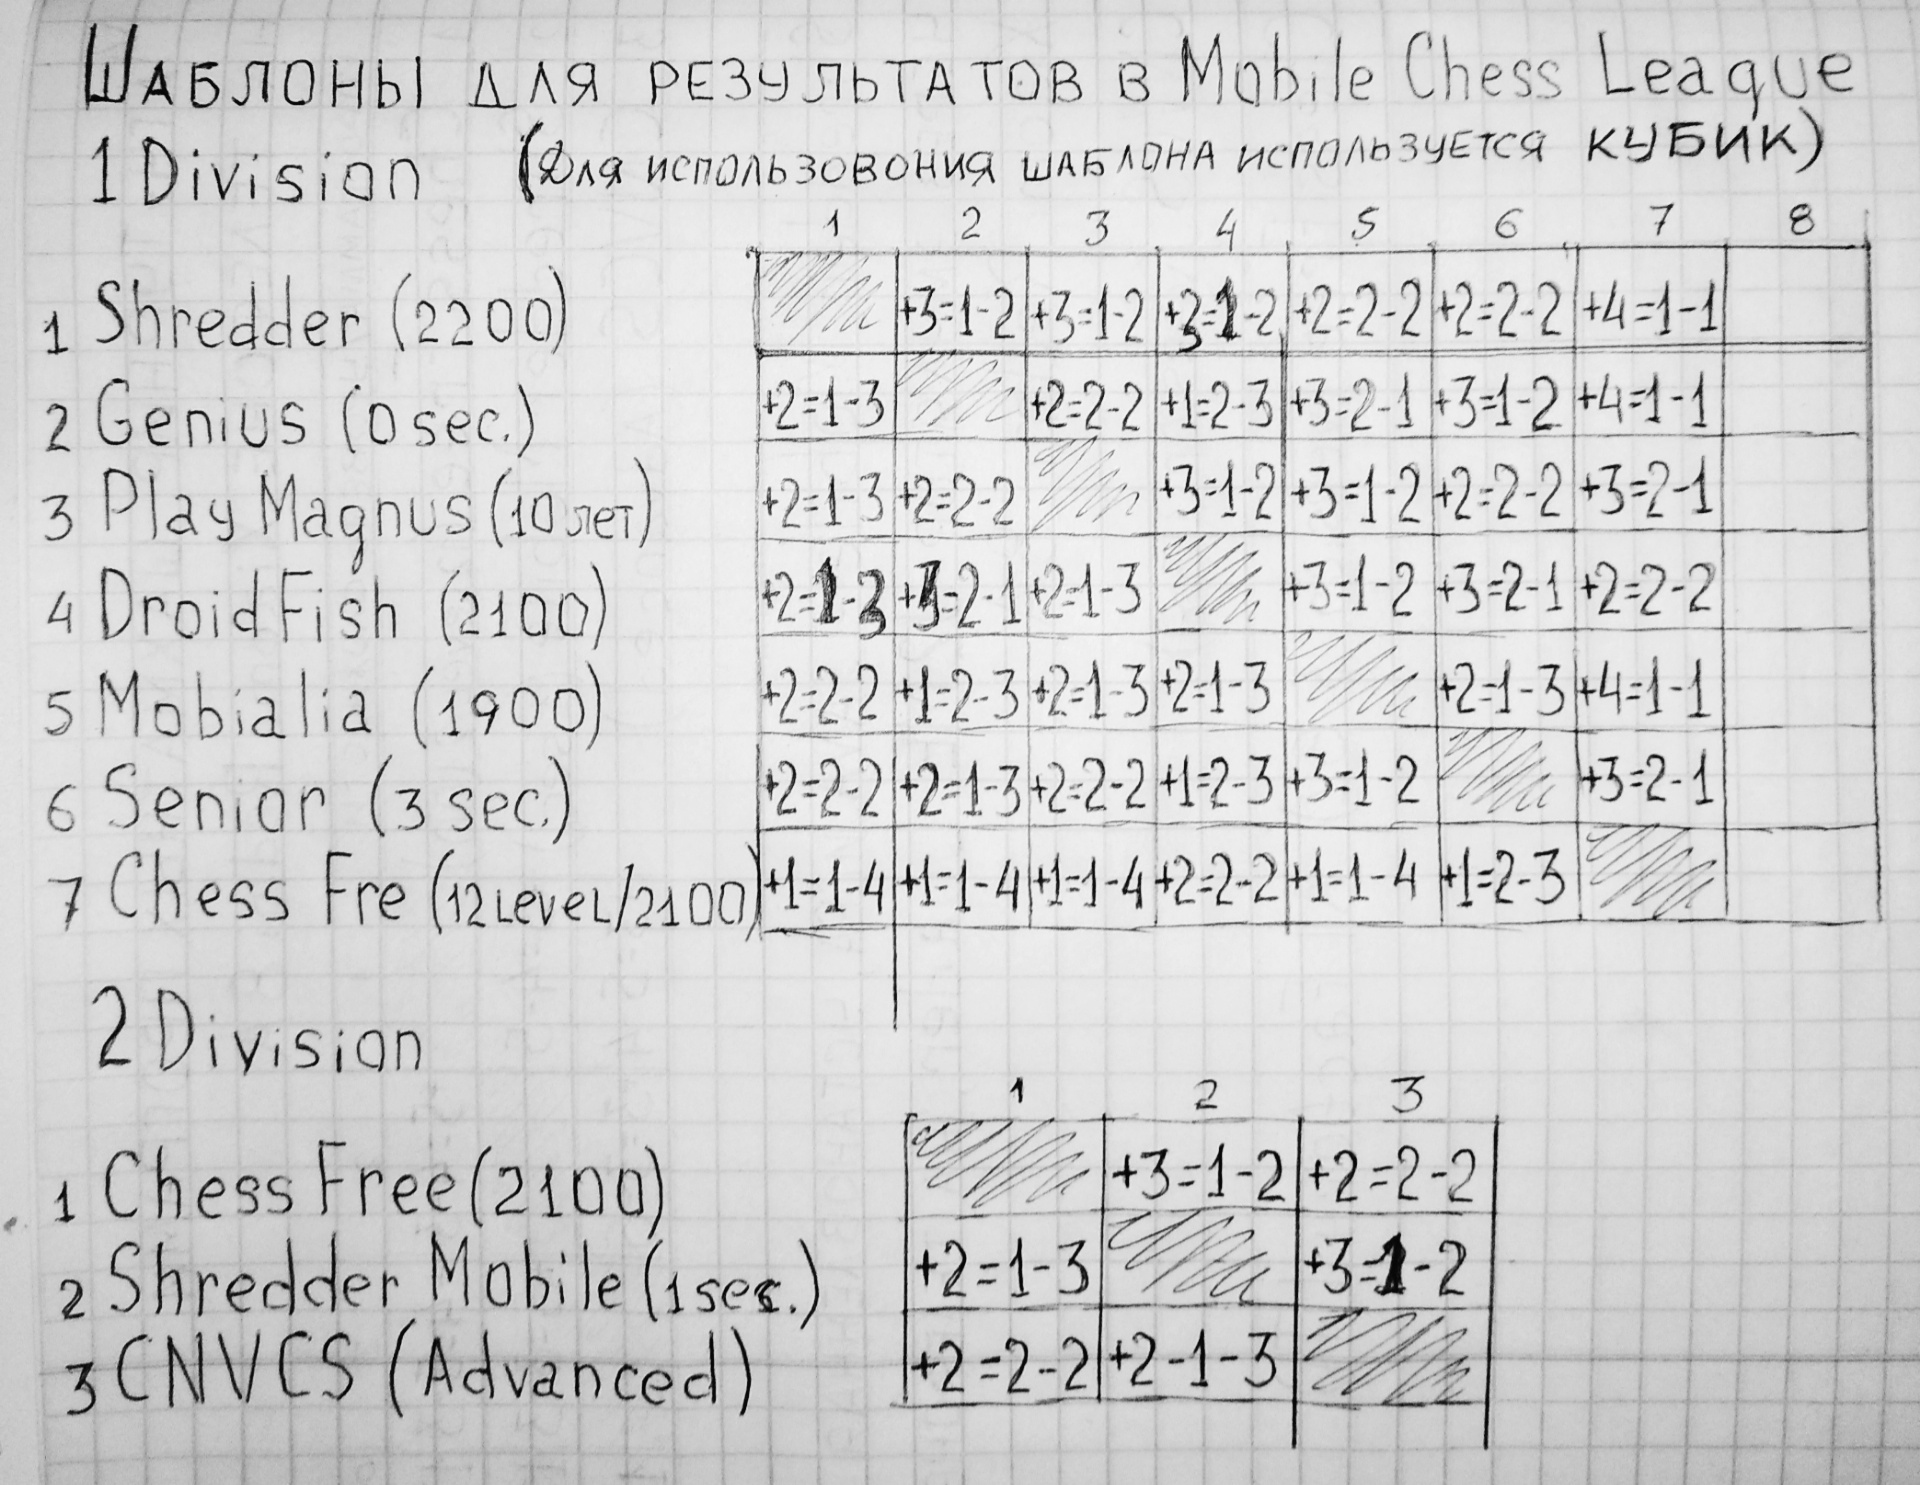 Шаблоны для результатов в Mobile Chess League
1 Division (Для использовония шаблона используется кубик)
1 2 3 4 5 6 7 8
1 Shredder (2200) +3=1-2 +3=1-2 +3=1-2 +2=2-2 +2=2-2 +4=1-1
2 Genius (0 sec.) +2=1-3 +2=2-2 +1=2-3 +3=2-1 +3=1-2 +4=1-1
3 Play Magnus (10 лет) +2=1-3 +2=2-2 +3=1-2 +3=1-2 +2=2-2 +3=2-1
4 DroidFish (2100) +2=1-3 +3=2-1 +2=1-3 +3=1-2 +3=2-1 +2=2-2
5 Mobialia (1900) +2=2-2 +1=2-3 +2=1-3 +2=1-3 +2=1-3 +4=1-1
6 Senior (3 sec.) +2=2-2 +2=1-3 +2=2-2 +1=2-3 +3=1-2 +3=2-1
7 Chess Fre (12 Level/2100) +1=1-4 +1=1-4 +1=1-4 +2=2-2 +1=1-4 +1=2-3
2 Division
1 2 3
1 Chess Free (2100) +3=1-2 +2=2-2
2 Shredder Mobile (1 sec.) +2=1-3 +3=1-2
3 CNVCS (Advanced) +2=2-2 +2-1-3